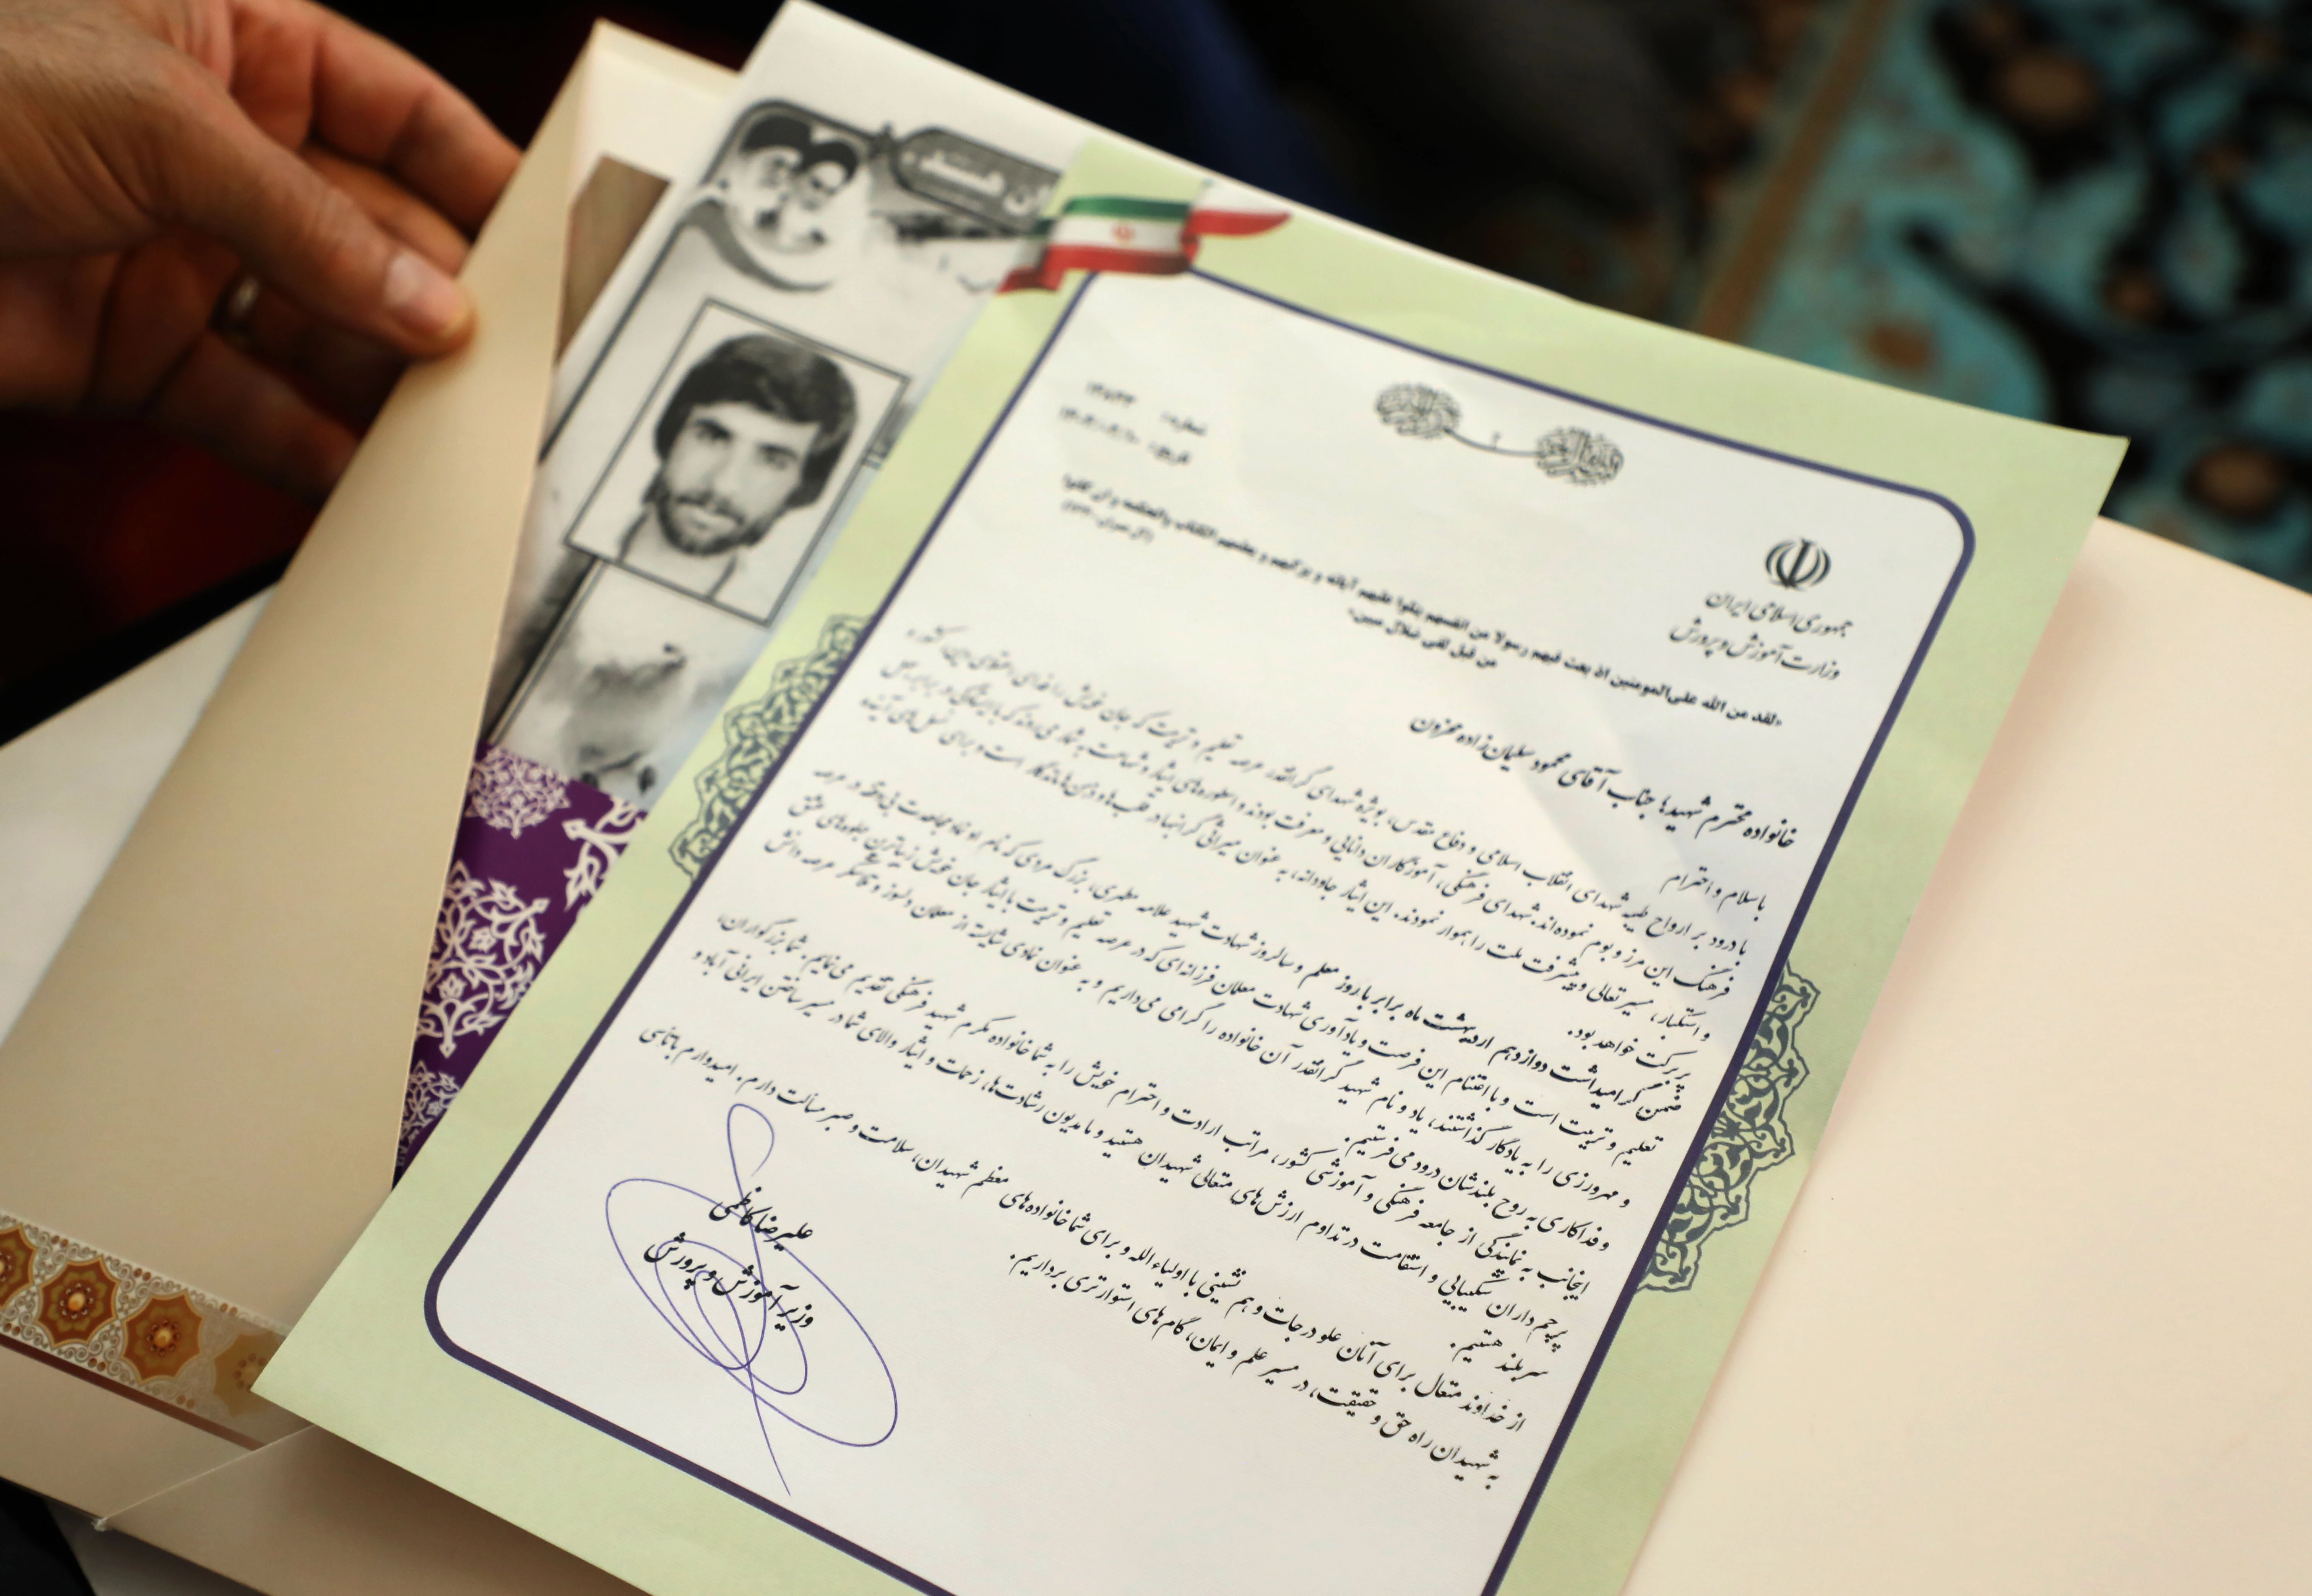 ن هستند
شماره:
تاریخ:
جمهوری اسلامی ایران
وزارت آموزش و پرورش
«لقد من الله علی المومنین اذ بعث فیهم رسولا من انفسهم یتلوا علیهم آیاته و یزکیهم و یعلمهم الکتاب والحکمه و ان کانوا
من قبل لفی ضلال مبین»
خانواده محترم شهید؛ جناب آقای محمود سلیمان زاده محزون
با سلام و احترام
با درود بر ارواح طیبه شهدای انقلاب اسلامی و دفاع مقدس، بویژه شهدای گرانقدر عرصه تعلیم و تربیت که جان خویش را فدای اعتلای
فرهنگ این مرز و بوم نموده‌اند. شهدای فرهنگی، آموزگاران دانایی و معرفت بودند و اسطوره‌های ایثار و شهامت به شمار می‌روند که با ایستادگی در برابر
و استکبار، مسیر تعالی و پیشرفت ملت را هموار نمودند. این ایثار جاودانه، به عنوان میراثی گرانبها در قلب‌ها و ذهن‌ها ماندگار است و برای نسل‌های آینده
پر برکت خواهد بود.
ضمن گرامیداشت دوازدهم اردیبهشت ماه برابر با روز معلم و سالروز شهادت شهید علامه مطهری، بزرگ مردی که نام او نماد مجاهدت بی‌وقفه در عرصه
تعلیم و تربیت است و با اغتنام این فرصت و یادآوری شهادت معلمان فرزانه‌ای که در عرصه تعلیم و تربیت با ایثار جان خویش زیباترین جلوه‌های عشق
و مهرورزی را به یادگار گذاشتند، یاد و نام شهید گرانقدر آن خانواده را گرامی می‌داریم و به عنوان نمادی شایسته از معلمان دلسوز و فداکار عرصه دانش
و فداکاری به روح بلندشان درود می‌فرستیم.
اینجانب به نمایندگی از جامعه فرهنگی و آموزشی کشور، مراتب ارادت و احترام خویش را به شما خانواده مکرم شهید فرهنگی تقدیم می‌نمایم. شما بزرگواران،
پرچم داران شکیبایی و استقامت در تداوم ارزش‌های متعالی شهیدان هستید و ما مدیون رشادت‌ها، زحمات و ایثار والای شما در مسیر ساختن ایرانی آباد و
سربلند هستیم.
از خداوند متعال برای آنان علو درجات و هم نشینی با اولیاء الله و برای شما خانواده‌های معظم شهیدان، سلامت و صبر مسألت دارم. امیدوارم با تأسی
به شهیدان راه حق و حقیقت، در مسیر علم و ایمان، گام‌های استوارتری برداریم.
علیرضا کاظمی
وزیر آموزش و پرورش